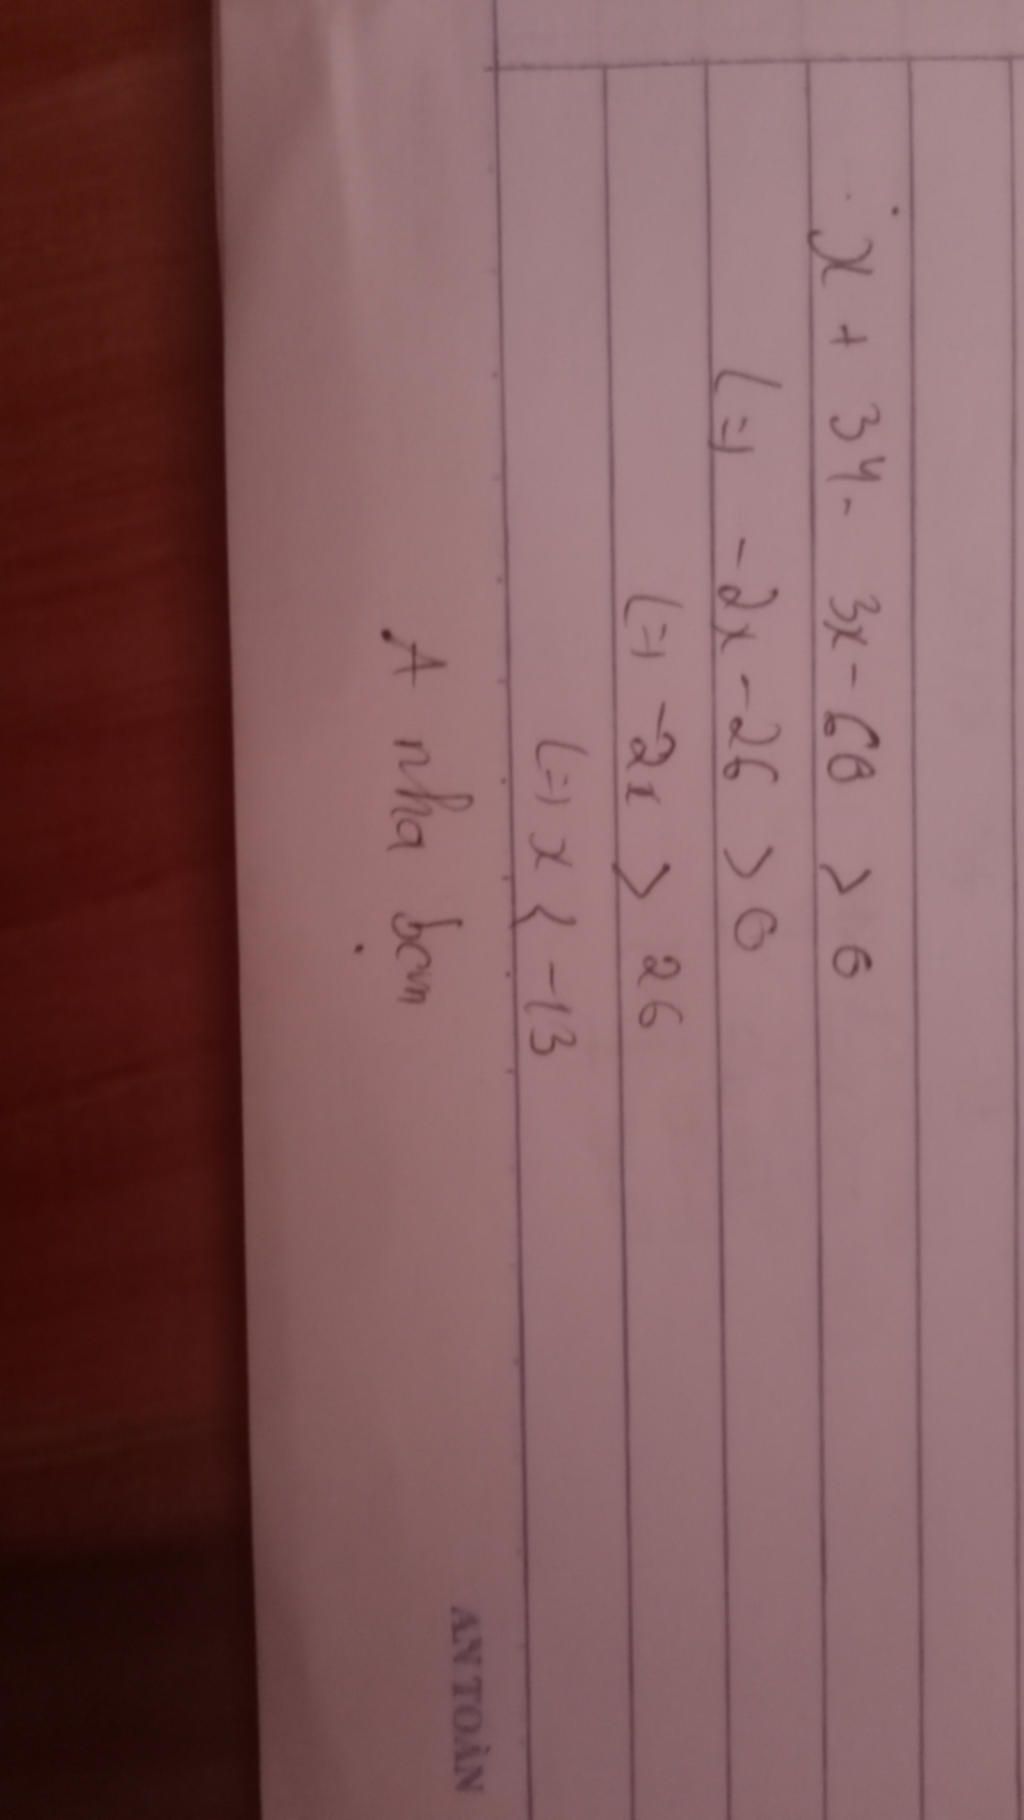 x + 34 - 3x - 60 > 0
(=) -2x - 26 > 0
(=) -2x > 26
(=) x < -13
A nha bạn
AN TOÀN